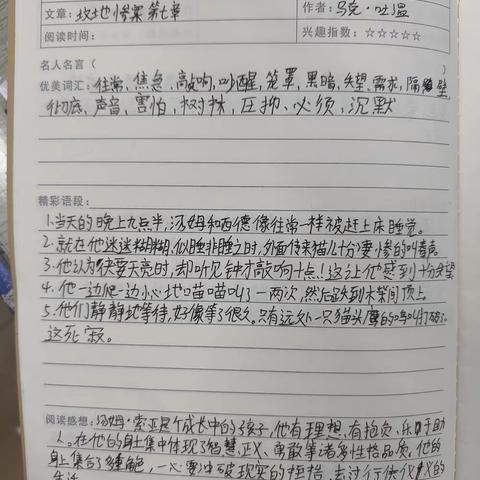 文章：坟地惨案第七章 作者：马克·吐温
阅读时间： 兴趣指数：☆☆☆☆☆
名人名言（
优美词汇：往常、焦急、敲响、吵醒、笼罩、黑暗、失望、需求、隔壁
彻底、声音、害怕、树林、压抑、必须、沉默
精彩语段：
1.当天的晚上九点半，汤姆和西德像往常一样被赶上床睡觉。
2.就在他迷迷糊糊、似睡非睡之时，外面传来猫儿十分凄惨的叫春声
3.他认为快要天亮时，却听见钟才敲响十点！这让他感到十分失望
4.他一边爬一边小心地“喵喵”叫了一两次，然后跳到木棚间顶上
5.他们静静地等待，好像等了很久。只有远处一只猫头鹰的鸣叫打破了
这死寂。
阅读感想：汤姆·索亚是个成长中的孩子，他有理想、有抱负、乐于助
人。在他的身上集中体现了智慧、正义、勇敢等诸多性格品质，他的
身上集合了多重角色，一心要冲破现实的桎梏，去过行侠仗义的
生活